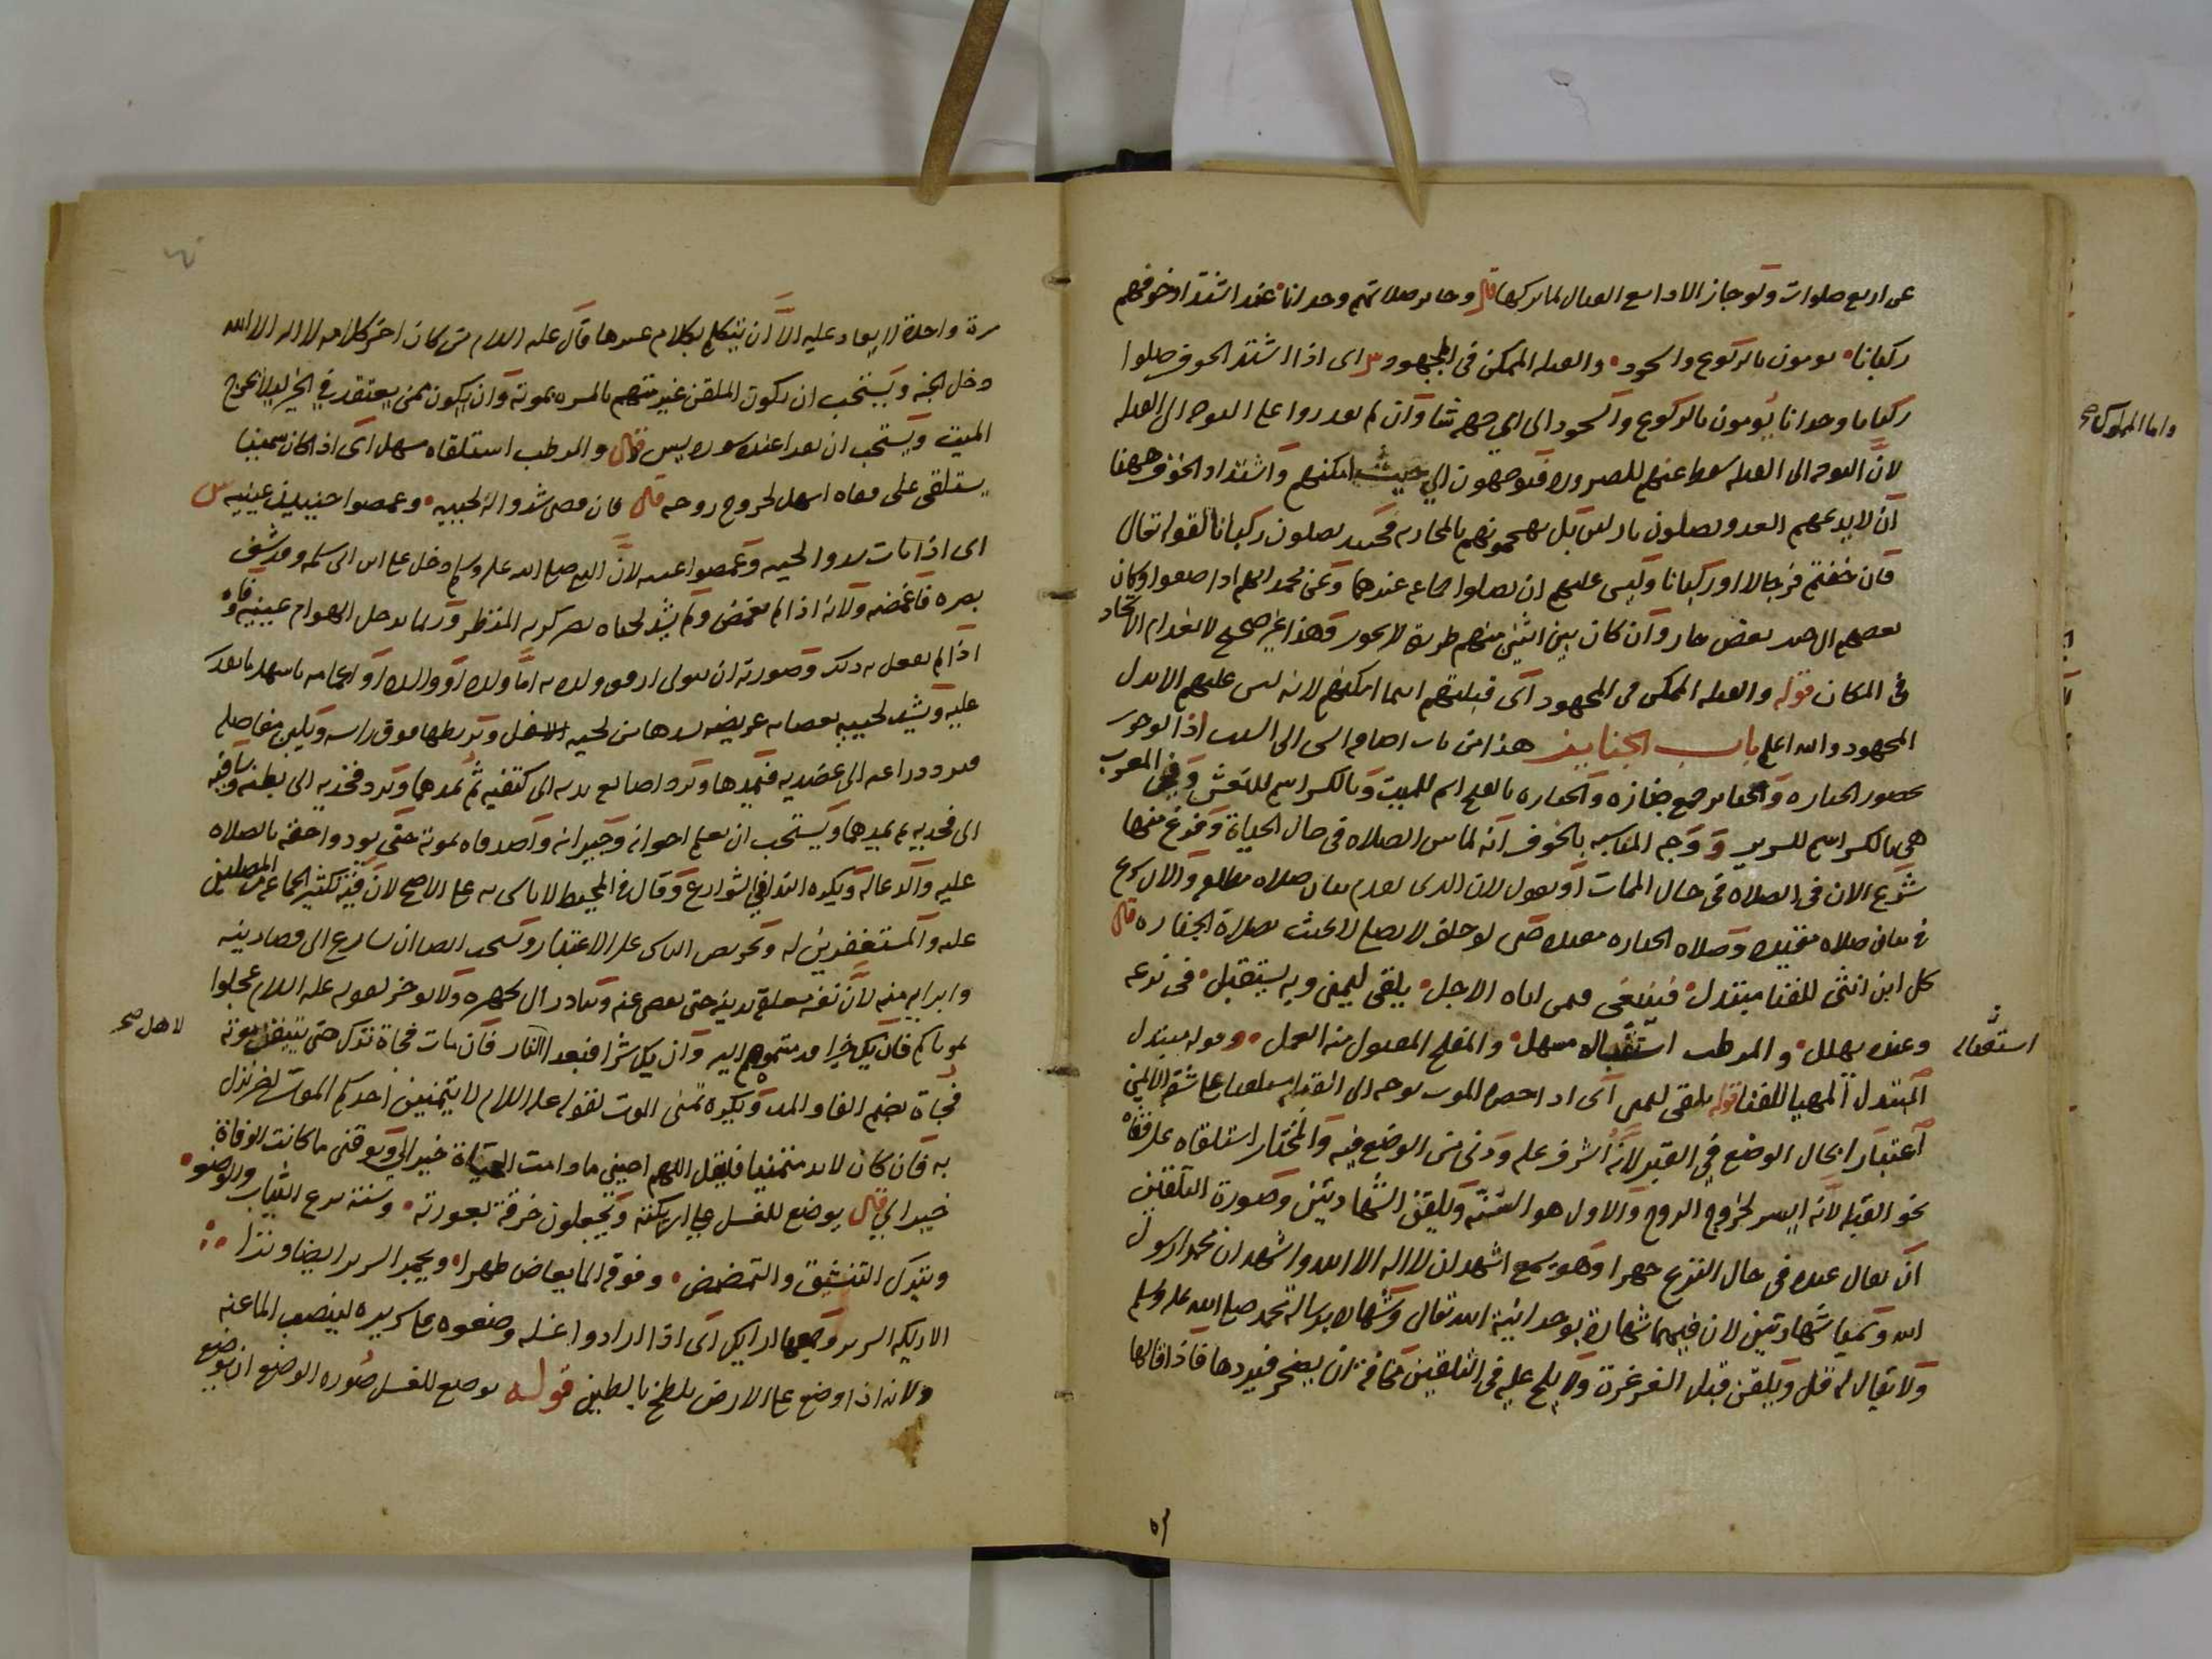 عن اربع صلوات ولو جاز الاداء مع القتال لما تركها قال وجايز صلاتهم وحدانا عند اشتداد خوفهم
ركبانا يومون بالركوع والسجود والقبلة الممكن في المجهود ش اى اذا اشتد الخوف صلوا
ركبانا وحدانا يؤمون بالركوع والسجود الى اي جهة شاوا ان لم يقدروا على التوجه الى القبلة
لان التوجه الى القبلة سقط عنهم للضرورة فيتوجهون الي حيث امكنهم واشتداد الخوف ههنا
ان لا يدعهم العدو يصلون نازلين بل يهجمونهم بالمحاربة فحينئذ يصلون ركبانا لقوله تعالى
فان خفتم فرجالا او ركبانا وليس عليهم ان يصلوا جماعة عندهما وعن محمد انهم اذا صفوا وكان
بعضهم الى بعض جاز وان كان بين اثنين منهم طريق لا يجوز وهذا غير صحيح لانعدام الاتحاد
في المكان قوله والقبلة الممكن في المجهود اى قبلتهم اينما امكنهم لانه ليس عليهم الا بذل
المجهود والله اعلم باب الجنايز هذا من باب اضافة الشى الى السبب اذ الوجوب
بحضور الجنازة والجنايز جمع جنازة والجنازة بالفتح اسم للميت وبالكسر اسم للنعش وفي المغرب
هي بالكسر اسم للسرير ووجه المناسبة بالخوف انه لما بين الصلاة في حال الحياة وفرغ منها
شرع الان في الصلاة في حال الممات او نقول لان الذى تقدم بيان صلاة مطلقة والان شرع
في بيان صلاة مقيدة وصلاة الجنازة مقيدة حتى لو حلف لا يصلي لا يحنث بصلاة الجنازة قال
كل ابن انثى للفنا مبتذل فينبغى فيمن اتاه الاجل يلقى ليمنى وبه يستقبل في نزعه
وعنده يهلل والمرطب استقباله سهل والمفلح المقبول منه العمل وقوله مبتذل
استلقاه
المبتذل المهيا للفنا قوله يلقى ليمنى اى اذا احضره الموت يوجه الى القبلة مستلقيا على شقه الايمن
اعتبارا بحال الوضع في القبر لانه اشرف عليه ودنى من الوضع فيه والمختار استلقاه على قفاه
نحو القبلة لانه ايسر لخروج الروح والاول هو السنة ويلقن الشهادتين وصورة التلقين
ان يقال عنده في حال النزع جهرا وهو يسمع اشهد ان لا اله الا الله واشهد ان محمدا رسول
الله وتسميا شهادتين لان فيهما شهادة بوحدانية الله تعالى وشهادة برسالة محمد صلى الله عليه وسلم
ولا يقال له قل ويلقن قبل الغرغرة ولا يلح عليه في التلقين مخافة ان يضجر فيردها فاذا قالها
واما المملوك
مرة واحدة لا يعاد عليه الا ان يتكلم بكلام غيرها قال عليه السلام من كان اخر كلامه لا اله الا الله
دخل الجنة ويستحب ان يكون الملقن غير متهم بالمسرة بموته وان يكون ممن يعتقد في الخير
الميت ويستحب ان يقرا عنده سورة يس قال والمرطب استلقاه سهل اى اذا كان سمينا
يستلقى على قفاه اسهل لخروج روحه قال فان قضى شدوا له لحييه وغمضوا حينئذ عينيه ش
اى اذا مات شدوا لحييه وغمضوا عينيه لان النبي صلى الله عليه وسلم دخل على ابى سلمة وقد شق
بصره فاغمضه ولانه اذا لم يغمض ولم يشد لحياه يصير كريه المنظر وربما يدخل الهوام عينيه وفاه
اذا لم يفعل به ذلك وصورته ان يتولى ارفق ولده به اما ولده او والده او اعمامه باسهل ما يقدر
عليه ويشد لحييه بعصابة عريضة يشدها من لحييه الاسفل ويربطها فوق راسه ويلين مفاصله
فيرد ذراعيه الى عضديه فيمدها ويرد اصابع يديه الى كتفيه ثم يمدهما ويرد فخذيه الى بطنه وساقيه
الى فخذيه ثم يمدهما ويستحب ان يعلم اخوانه وجيرانه واصدقاه بموته حتى يودوا حقه بالصلاة
عليه والدعا له ويكره الندا في الشوارع وقال في المحيط لا باس به على الاصح لان فيه تكثير الجماعة من المصلين
عليه والمستغفرين له وتحريض الناس على الاعتبار ويستحب ايضا ان يسارع الى قضا دينه
وابرايه منه لان نفسه معلقة بدينه حتى يقضى عنه ويبادر الى تجهيزه ولا يوخر لقوله عليه السلام عجلوا
بموتاكم فان يك خيرا قدمتموهم اليه وان يك شرا فبعدا النار فان مات فجاة ترك حتى يتيقن موته
لاهل صح
فجاة بضم الفا والمد ويكره تمنى الموت لقوله عليه السلام لا يتمنين احدكم الموت لضر نزل
به فان كان لا بد متمنيا فليقل اللهم احيني ما دامت الحياة خيرا لي وتوفنى ما كانت الوفاة
خيرا لي قال يوضع للغسل على اريكته ويجعلون خرقة لعورته وسنة نزع الثياب والوضو
ويترك التنشيق والتمضمض وفوقه الما يفاض طهرا ويجمر السرير ايضا وترا
الاريكة السرير وجمعها ارايك اى اذا ارادوا غسله وضعوه على سريره لينصب الما عنه
ولانه اذا وضع على الارض يلطخ بالطين قوله يوضع للغسل صورة الوضع ان يوضع